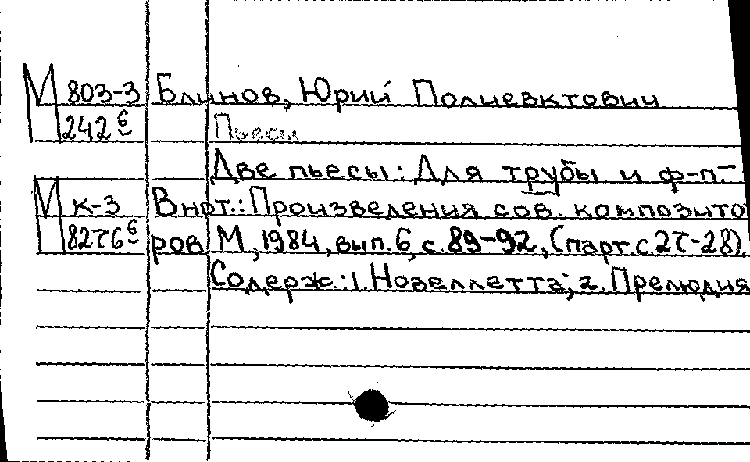 М 803-3 Блинов, Юрий Полиевктович
242 б Пьесы
Две пьесы: Для трубы и ф-п.-
М к-3 Внрт.: Произведения сов. композито
8276 б ров М., 1984, вып. 6, с. 89-92, (парт. с 27-28).
Содерж.: 1. Новеллетта; 2. Прелюдия